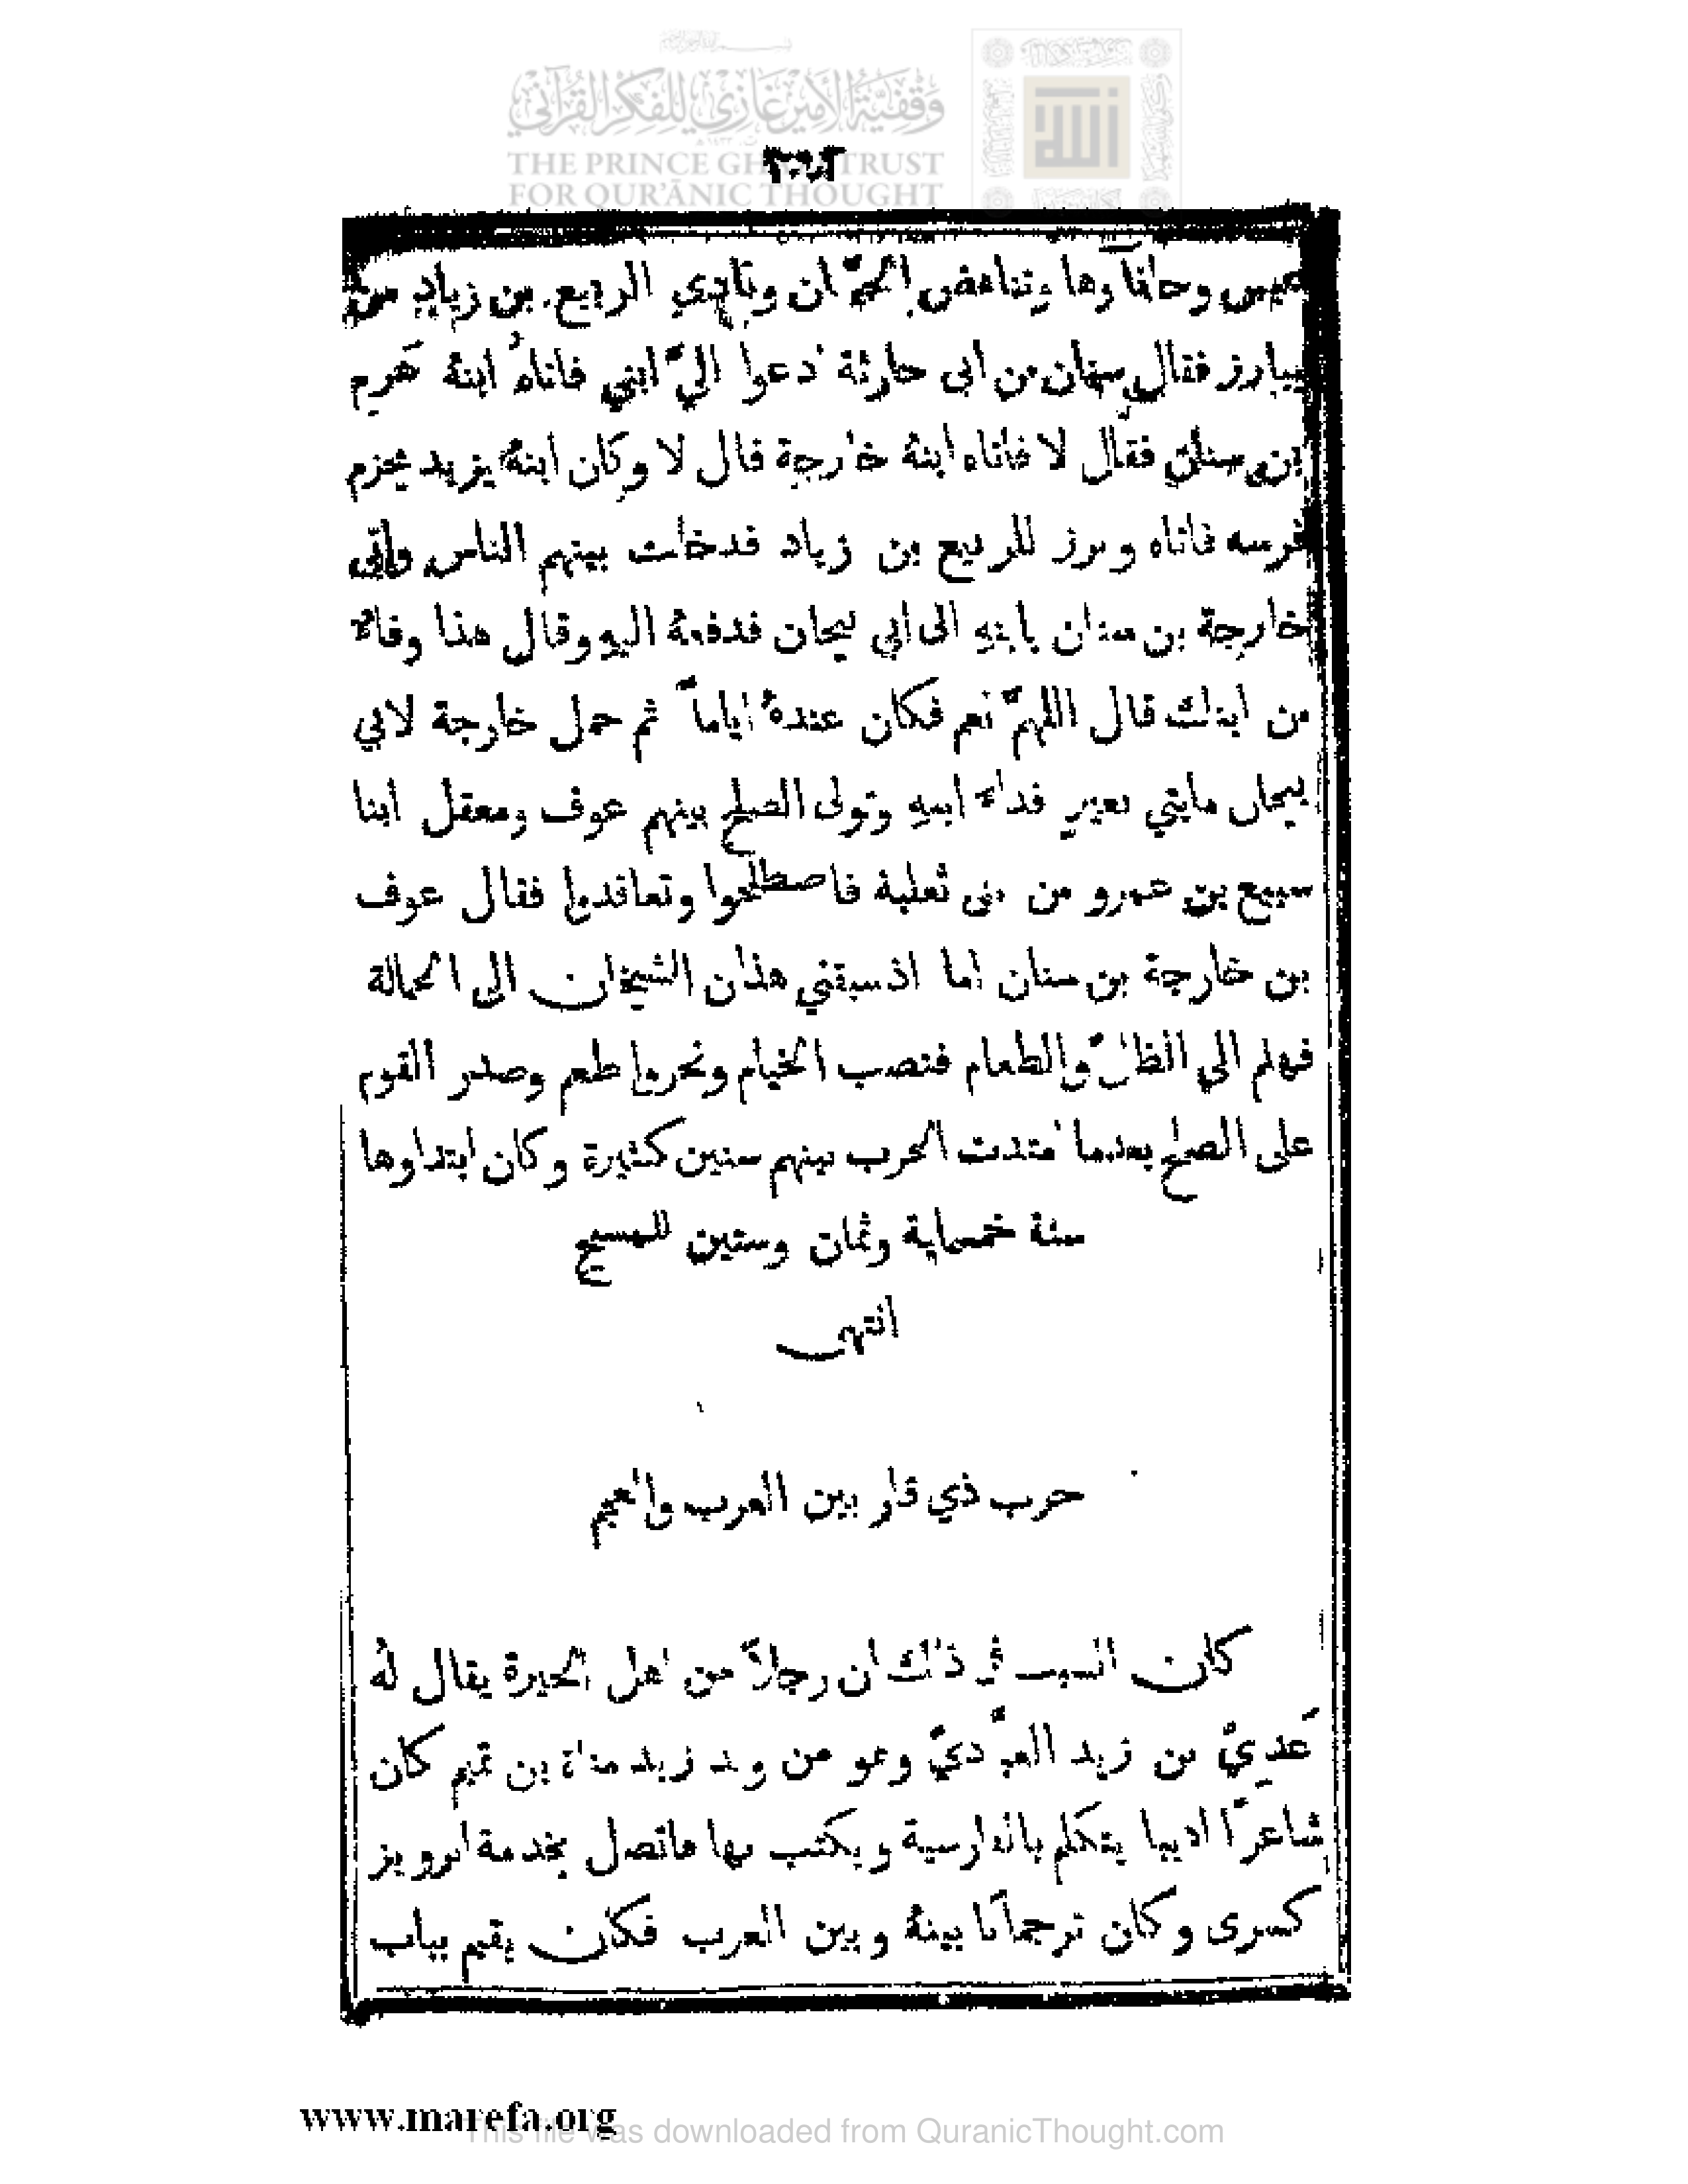 وقفية الأمير غازي للفكر القرآني
THE PRINCE GHAZI TRUST
FOR QUR'ĀNIC THOUGHT
عبس وحلفاؤها وتناهض الحيان ونادى الربيع بن زياد من
يبارز فقال سنان بن ابى حارثة ادعوا اليّ ابني فاتاهُ ابنهُ هَرِم
بن سنان فقال لا فاتاه ابنهُ خارجة قال لا وكان ابنهُ يزيد يحزم
فرسه فاتاه وبرز للربيع بن زياد فدخلت بينهم الناس واتى
خارجة بن سنان بابنهِ الى ابي بيجان فدفعهُ اليهِ وقال هذا وفاء
من ابنك قال اللهمّ نعم فكان عندهُ اياماً ثم حمل خارجة لابي
بيجان مايتي بعيرٍ فداء ابنهِ وتولى الصلح بينهم عوف ومعقل ابنا
سبيع بن عمرو من بنى ثعلبة فاصطلحوا وتعاقدوا فقال عوف
بن خارجة بن سنان اما اذ سبقني هذان الشيخان الى الحمالة
فهلم الى الظلّ والطعام فنصب الخيام ونحر واطعم وصدر القوم
على الصلح بعدما امتدت الحرب بينهم سنين كثيرة وكان ابتداوها
سنة خمسماية وثمان وستين للمسيح
انتهى
حرب ذي قار بين العرب والعجم
كان السبب في ذلك ان رجلاً من اهل الحيرة يقال لهُ
عَدِيّ بن زيد العبَّاديّ وهو من ولد زيد مناة بن تميم كان
شاعرًا اديبا يتكلم بالفارسية ويكتب بها فاتصل بخدمة ابرويز
كسرى وكان ترجمانًا بينهُ وبين العرب فكان يقيم بباب
www.marefa.org
This file was downloaded from QuranicThought.com